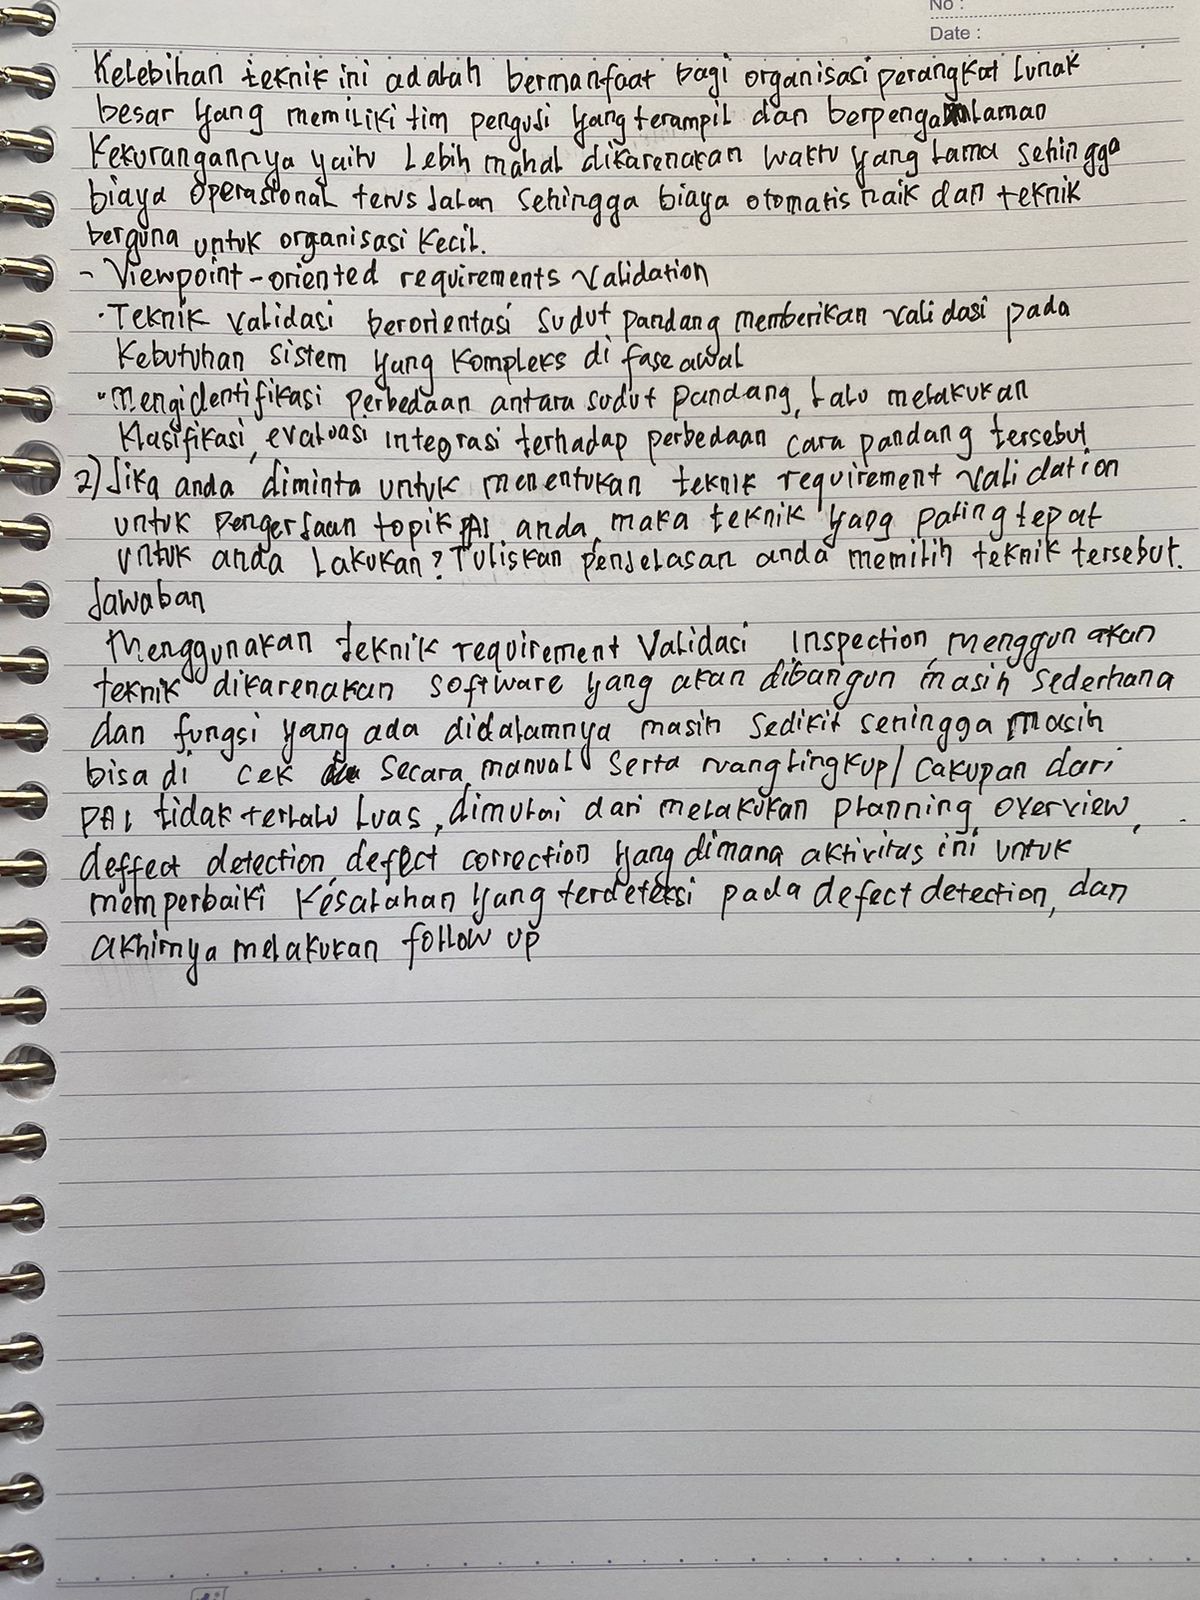 No :
Date :
Kelebihan teknik ini adalah bermanfaat bagi organisasi perangkat lunak
besar yang memiliki tim penguji yang terampil dan berpengalaman
Kekurangannya yaitu Lebih mahal dikarenakan waktu yang lama sehingga
biaya operasional terus Jalan Sehingga biaya otomatis naik dan teknik
berguna untuk organisasi Kecil.
- Viewpoint-oriented requirements validation
• Teknik validasi berorientasi sudut pandang memberikan validasi pada
Kebutuhan sistem yang Kompleks di fase awal
• mengidentifikasi perbedaan antara sudut pandang, Lalu melakukan
Klasifikasi, evaluasi integrasi terhadap perbedaan cara pandang tersebut
2) Jika anda diminta untuk menentukan teknik requirement validation
untuk pengerjaan topik PA1 anda, maka teknik yang paling tepat
untuk anda Lakukan? Tuliskan penjelasan anda memilih teknik tersebut.
Jawaban
Menggunakan teknik requirement Validasi Inspection, menggunakan
teknik dikarenakan software yang akan dibangun masih sederhana
dan fungsi yang ada didalamnya masih sedikit sehingga masih
bisa di cek secara manual serta ruang lingkup/ cakupan dari
PA1 tidak terlalu Luas, dimulai dari melakukan planning, overview,
deffect detection, defect correction yang dimana aktivitas ini untuk
memperbaiki Kesalahan yang terdeteksi pada defect detection, dan
akhirnya melakukan follow up